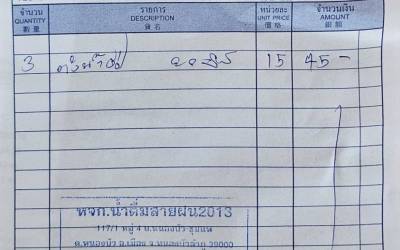 จำนวน รายการ หน่วยละ จำนวนเงิน
QUANTITY DESCRIPTION UNIT PRICE AMOUNT
數量 貨名 價格 銀額
3 15 45-
หจก.น้ำดื่มสายฝน2013
117/1 หมู่ 4 บ.หนองบัว ชุมแพ
ต.หนองบัว อ.เมือง จ.หนองบัวลำภู 39000